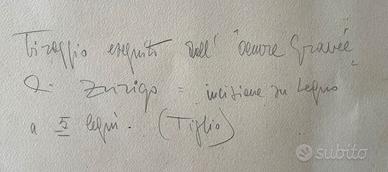 Tiraggio eseguito dall' "Oeuvre Gravée"
di Zurigo = incisione su legno
a 5 legni. (Tiglio)
subito